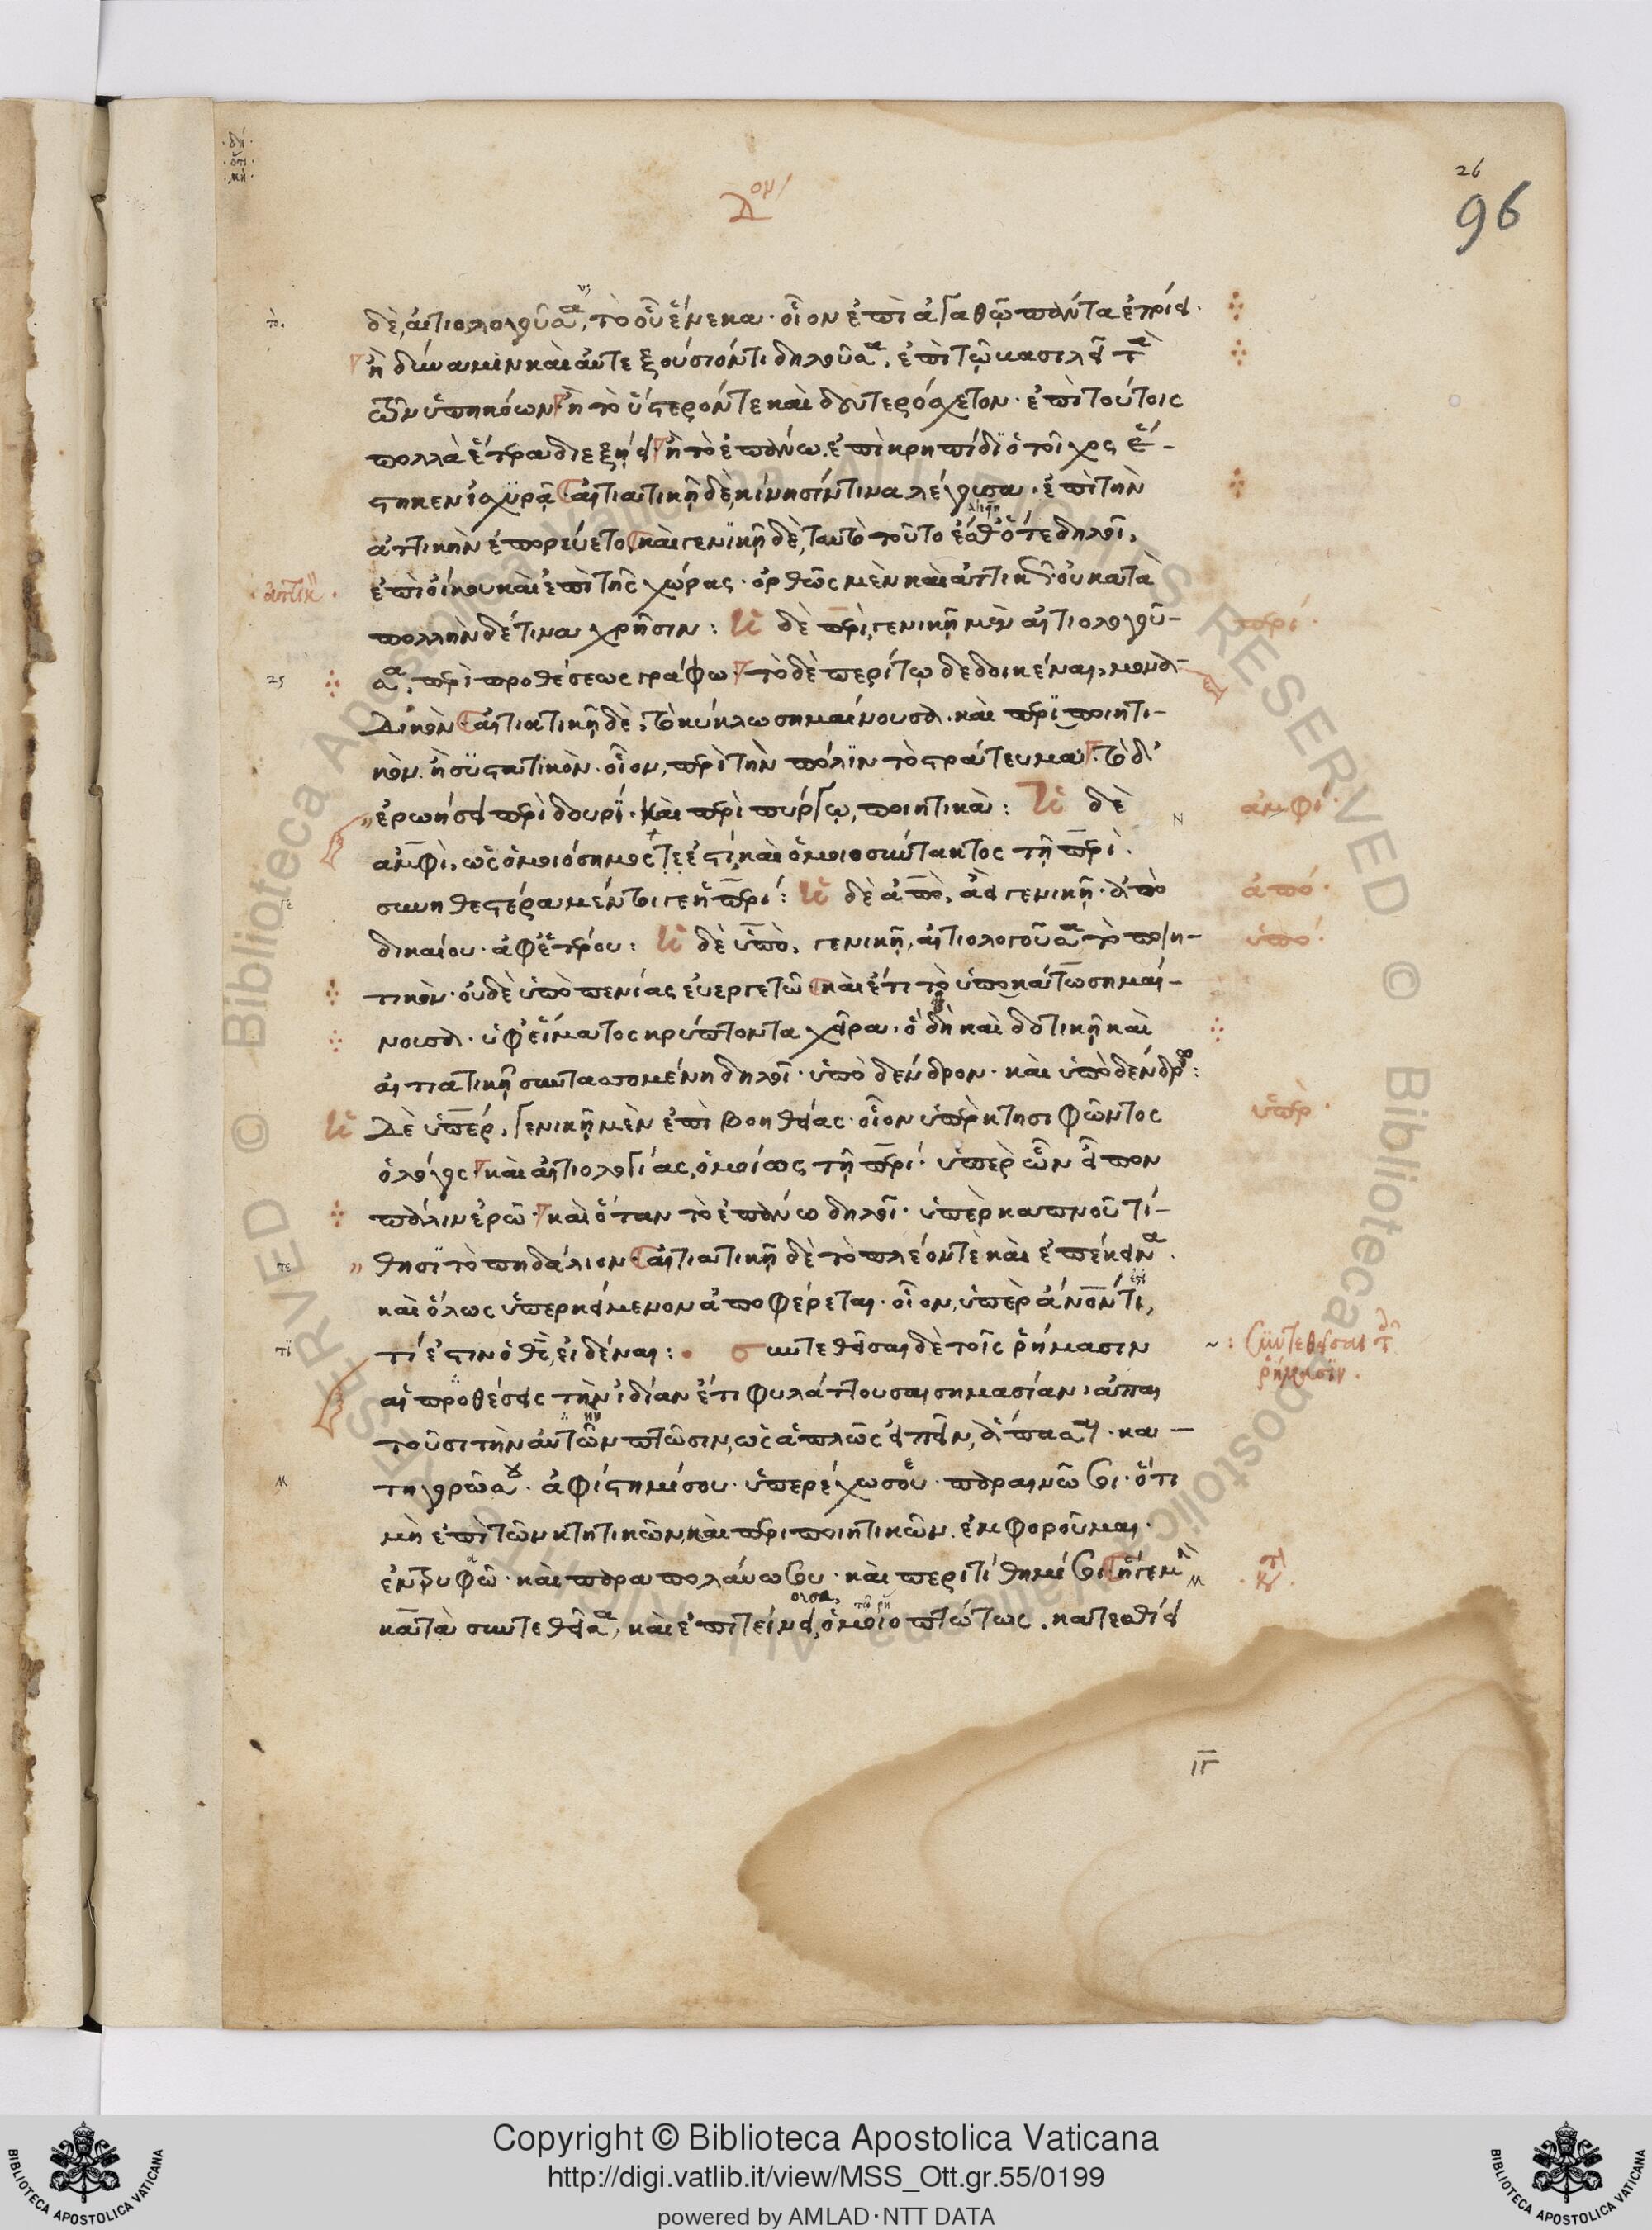 26
96
δὲ, αἰτιολογοῦσα, τὸ οὗ ἕνεκα · οἷον ἐπὶ ἀγαθῷ πάντα
ἢ δύναμιν καὶ αὐτεξουσιόν τι δηλοῦσα, ἐπὶ τῷ βασιλεῖ
τῶν ὑπηκόων ἢ τὸ ὕστερόν τε καὶ δευτερόσχετον · ἐπὶ τούτοις
πολλὰ ἕτερα διεξῄει ἢ τὸ ἐπάνω. ἐπὶ κρηπῖδι ὁ τοῖχος ἕ-
στηκεν ἰσχυρᾷ αἰτιατικῇ δὲ, κίνησίν τινα λέγουσα · ἐπὶ τὴν
ἀττικὴν ἐπορεύετο καὶ γενικῇ δὲ, ταυτὸ τοῦτο ἔσθ' ὅτε δηλοῖ,
ἐπὶ οἴκου καὶ ἐπὶ τῆς χώρας · ὀρθῶς μὲν καὶ ἀττικῶς · οὐ κατὰ
πολλὴν δέ τινα χρῆσιν : Ἡ δὲ περὶ, γενικῇ μὲν αἰτιολογοῦ-
σα, περὶ προθέσεως γράφω τὸ δὲ περί τῳ δεδοικέναι,
αἰτιατικῇ δὲ, τὸ κύκλω σημαίνουσα. καὶ περὶ ποιητι-
κὸν ἢ συστατικὸν · οἷον, περὶ τὴν πόλιν τὸ στράτευμα · τὸ δ'
ἐρωήσει περὶ δουρί · καὶ περὶ πύργῳ, ποιητικὰ : Ἡ δὲ
ἀμφὶ, ὡς ὁμοιόσημός τε ἐστὶ καὶ ὁμοιοσύντακτος τῇ περὶ.
συνηθεστέρα μέντοι γε ἡ περί : Ἡ δὲ ἀπὸ, ἀεὶ γενικῇ · ἀπὸ
δικαίου · ἀφ' ἑτέρου : Ἡ δὲ ὑπὸ, γενικῇ, αἰτιολογοῦσα τὸ ποιη-
τικὸν · οὐδὲ ὑπὸ πενίας εὐεργετῶ καὶ ἔτι τὸ ὑποκάτω σημαί-
νουσα · ὑφ' εἵματος κρύπτοντα χεῖρα · ὃ δὴ καὶ δοτικῇ καὶ
αἰτιατικῇ συνταττομένη δηλοῖ · ὑπὸ δένδρον · καὶ ὑπὸ δένδρῳ :
Ἡ Δὲ ὑπέρ, γενικῇ μὲν ἐπὶ βοηθείας · οἷον ὑπὲρ κτησιφῶντος
ὁ λόγος καὶ αἰτιολογίας, ὁμοίως τῇ περί · ὑπὲρ ὧν εἶπον
πάλιν ἐρῶ · καὶ ὅταν τὸ ἐπάνω δηλοῖ · ὑπὲρ καπνοῦ τί-
θησι τὸ πηδάλιον αἰτιατικῇ δὲ τὸ πλέον τὲ καὶ ἐπέκεινα.
καὶ ὅλως ὑπερκείμενον ἀποφέρεται · οἷον, ὑπὲρ ἄνον τι,
τί ἐστιν ὁ θς, εἰδέναι : συντεθεῖσαι δὲ τοῖς ῥήμασιν
αἱ προθέσεις τὴν ἰδίαν ἔτι φυλάττουσαι σημασίαν, ἀπαι
τοῦσι τὴν αὐτῶν πτῶσιν, ὡς ἁπλῶς εἰπεῖν, ἅπασαι · κα-
τηγορῶ σου · ἀφίστημί σου · ὑπερέχω σου · παραινῶ σοι · ὅτι
μὴ ἐπὶ τῶν κτητικῶν, καὶ περιποιητικῶν · ἐμφοροῦμαι ·
ἐντρυφῶ · καὶ παραπολαύω σου · καὶ περιτίθημί σοι
κατὰ συντεθεῖσα, καὶ ἐπιτείνει, ὁμοιοπτώτως · κατεσθίει
ἀττικ
περί ·
ἀμφί ·
ἀπό ·
ὑπό ·
ὑπέρ ·
Συντεθεῖσαι τοῖς
ῥήμασιν ·
Copyright © Biblioteca Apostolica Vaticana
http://digi.vatlib.it/view/MSS_Ott.gr.55/0199
powered by AMLAD·NTT DATA
BIBLIOTECA APOSTOLICA VATICANA
BIBLIOTECA APOSTOLICA VATICANA